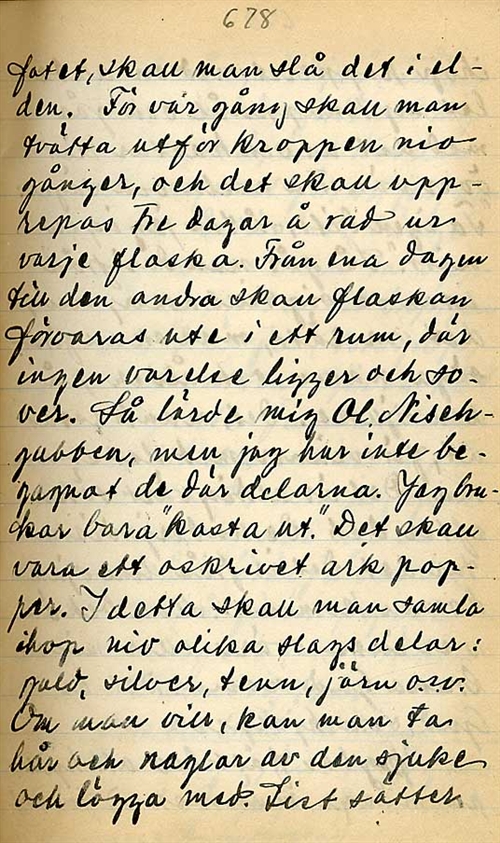 678
fatet, skall man slå det i el-
den. För var gång skall man
tvätta utför kroppen nio
gånger, och det skall upp-
repas tre dagar å rad ur
varje flaska. Från ena dagen
till den andra skall flaskan
förvaras ute i ett rum, där
ingen varelse ligger och so-
ver. Så lärde mig Ol. Nisch-
gubben, men jag har inte be-
gagnat de där delarna. Jag bru-
kar bara "kasta ut." Det skall
vara ett oskrivet ark pap-
per. I detta skall man samla
ihop nio olika slags delar:
guld, silver, tenn, järn o.s.v.
Om man vill, kan man ta
hår och naglar av den sjuke
och lägga med. Sist sätter